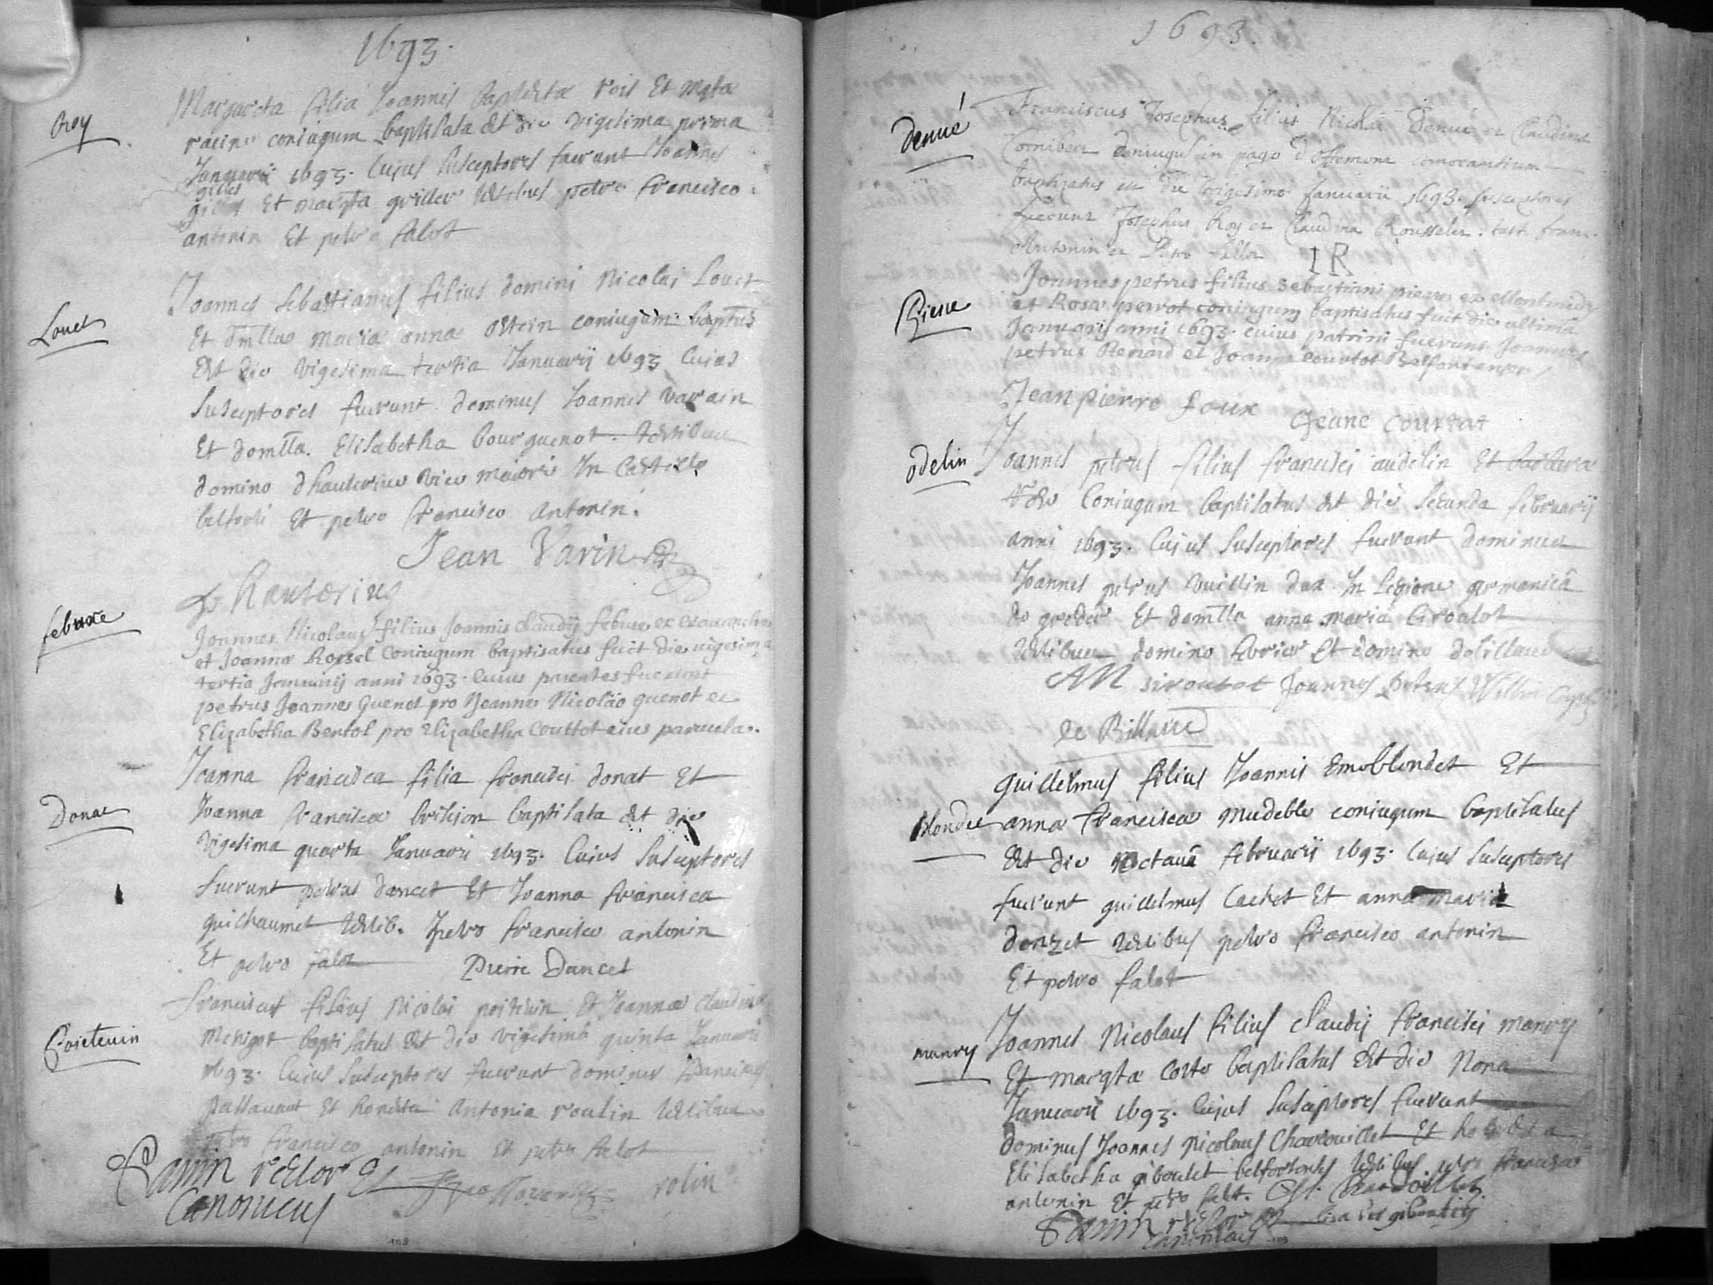 1693.
Roy
Margareta filia Joannis Baptistæ rois Et mgta
racine coniugum baptisata est die vigesima prima
Januarii 1693. Cujus susceptores fuerunt Joannes
gilles
Et margta griller testibus petro francisco
antonin Et petro falot
Louet
Joannes sebastianus filius domini Nicolai Louet
Et dmllæ maria anna ostein coniugum baptus
Est die vigesima tertia Januarij 1693 Cujus
susceptores fuerunt dominus Joannes varain
Et domlla. Elisabetha bourguenot. testibus
domino dhauterive vice maiori In Castello
belforti Et petro francisco antonin.
Jean Varin
hauterive
febure
Joannes Nicolaus filius Joannis claudij febure ex
et Joannæ Rossel coniugum baptisatus fuit die vigesima
tertia Januarij anni 1693. cuius parentes fuerunt
petrus Joannes Quenot pro Joanne Nicolao quenot et
Elizabetha Bertot pro Elizabetha Couttot eius parvula.
Donat
Joanna francisca filia francisci donat Et
Joanna francisca baptisata est die
vigesima quarta Januarii 1693. Cujus susceptores
fuerunt petrus dancet Et Joanna francisca
guichaumet testib. petro francisco antonin
Et petro falot Pierre Dancet
Poictevin
franciscus filius Nicolai poitevin Et Joannæ claudinæ
Mehigot baptisatus Est die vigesima quinta Januarii
1693. Cujus susceptores fuerunt dominus
passavant Et honesta Antonia roulin testibus
petro francisco antonin Et petro falot
rector
Canonicus rolin
1693.
Denué
Franciscus Josephus filius Nicolai Denué et Claudinæ
Cornibert coniugum in pago d'offemont comorantium
baptizatus est die trigesima Januarii 1693. susceptores
fuerunt Josephus Roy et Claudina Rousselet. test. franc.
Antonin et Petro fallo IR
Pierre
Joannes petrus filius Sebastiani pierre ex
et Rosæ perrot coniugum baptisatus fuit die ultima
Januarij anni 1693. cuius patrini fuerunt Joannes
petrus Renard et Joanna courtot Belfortenses
Jean pierre foux
Jeane Courtat
odelin
Joannes petrus filius francisci audelin Et barbara
Coniugum baptisatus Est die secunda februarij
anni 1693. Cujus susceptores fuerunt dominus
Joannes petrus vuillin dux In legione germanica
de greder Et domlla anna maria Groulot
testibus domino Et domino
AM Joannes petrus
de Billaud
blondee
Guillelmus filius Joannis Emoblondet Et
anna francisca mudeble coniugum baptisatus
Est die octava februarij 1693. Cujus susceptores
fuerunt guillelmus Cachet Et anna maria
donzet testibus petro francisco antonin
Et petro falot
manry
Joannes Nicolaus filius claudij francisci manry
Et margta Cotte baptisatus Est die Nona
Januarii 1693. Cujus susceptores fuerunt
dominus Joannes Nicolaus Chardouillet Et honesta
Elisabetha giboutet belfortenses testibus petro francisco
antonin Et petro falot.
rector
Canonicus